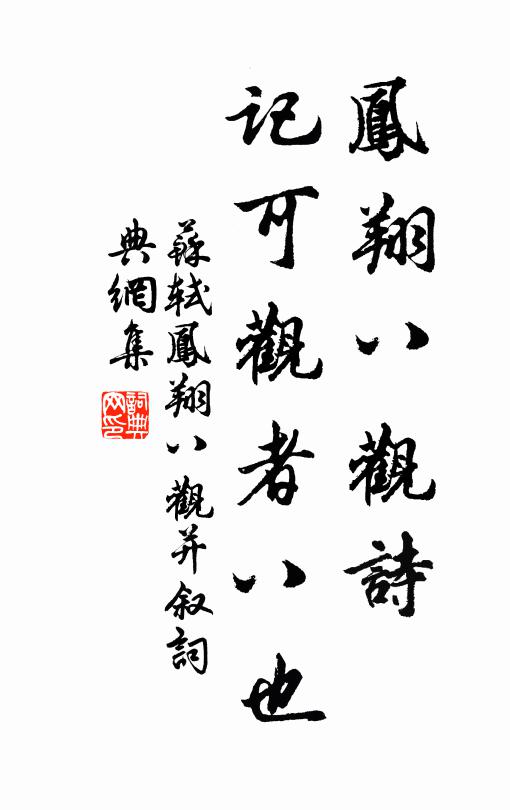 鳳翔八觀詩
記可觀者八也
蘇軾鳳翔八觀并叙詞
典網集
詞典网印